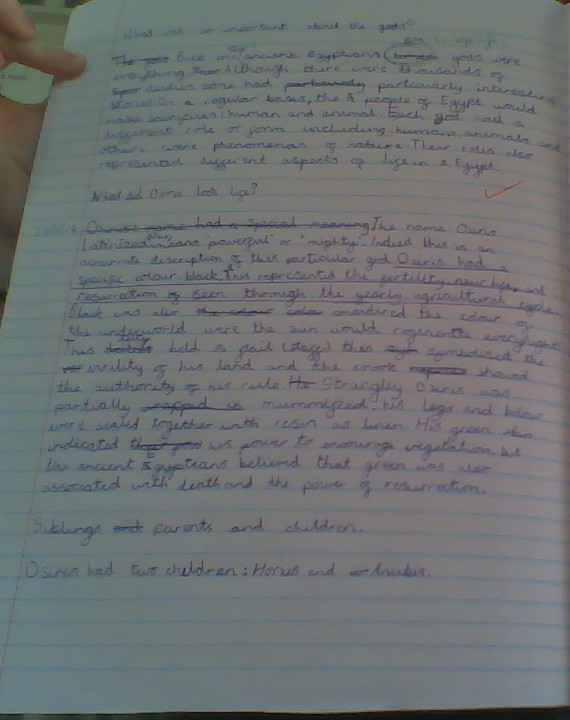 What was so important about the gods?
Back in ancient Egyptians gods were
everything Although there were thousands of
deities some had particularly interesting
stories. On a regular basis, the people of Egypt would
make sacrifices; human and animal. Each god had a
different role or form including humans, animals and
others were phenomenas of nature. Their roles also
represented different aspects of life in Egypt.
What did Osiris look like?
Osiris name had a special meaning The name Osiris
Latinized means "powerful" or "mighty". Indeed this is an
accurate description of this particular god. Osiris had a
specific colour: black. This represented the fertility, new life, and
resurrection of seen through the yearly agricultural cycle.
Black was also the colour considered the colour of
the underworld were the sun would regenerate every night
This held a flail (staff) this symbolised the
virility of his land and the crook showed
the authority of his rule. He Strangley Osiris was
partially wrapped in mummified; his legs and below
were sealed together with resin as linen. His green skin
indicated his power to encourage vegetation, but
the ancient Egyptians believed that green was also
associated with death and the power of resurrection.
Siblings and parents and children.
Osiris had two children: Horus and Anubis.